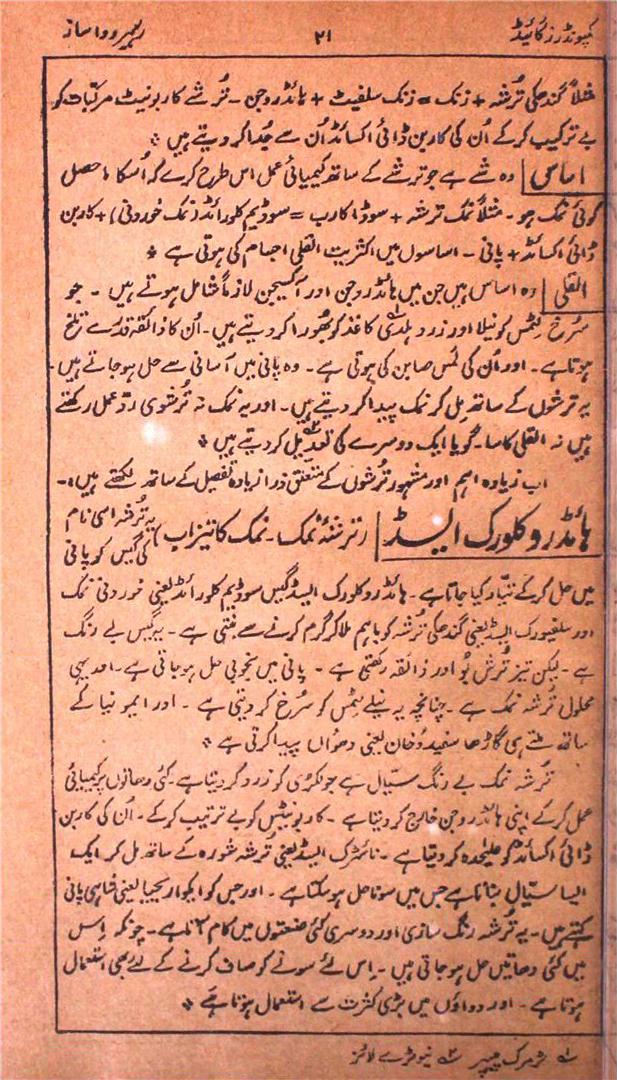 کمپونڈرز گائیڈ ۲۱ رہبر دوا ساز
مثلاً گندھکی ترشہ + زنک = زنک سلفیٹ + ہائڈروجن ۔ ترشے کاربونیٹ مرکبات کو
بے ترکیب کرکے اُن کی کاربن ڈائی اکسائڈ اُن سے جُدا کر دیتے ہیں *
اساس | وہ شے ہے جو ترشے کے ساتھ کیمیائی عمل اس طرح کرے کہ اُسکا ماحصل
کوئی نمک ہو ۔ مثلاً نمک ترشہ + سوڈا کارب = سوڈیم کلورائڈ (نمک خوردنی) + کاربن
ڈائی اکسائڈ + پانی ۔ اساسوں میں اکثریت القلی اجسام کی ہوتی ہے *
القلی | وہ اساس ہیں جن میں ہائڈروجن اور آکسیجن لازماً شامل ہوتے ہیں ۔ جو
سُرخ لٹمس کو نیلا اور زرد ہلدی کاغذ کو بھُورا کر دیتے ہیں ۔ اُن کا ذائقہ قدرے تلخ
ہوتا ہے ۔ اور اُن کی لمس صابن کی ہوتی ہے ۔ وہ پانی میں آسانی سے حل ہوجاتے ہیں ۔
یہ ترشوں کے ساتھ مِل کر نمک پیدا کر دیتے ہیں ۔ اور یہ نمک نہ ترشوی ردّ عمل رکھتے
ہیں نہ القلی کا سا ۔ گویا ایک دوسرے کی تعدیل کر دیتے ہیں *
اب زیادہ اہم اور مشہور ترشوں کے متعلق ذرا زیادہ تفصیل کے ساتھ لکھتے ہیں :۔
ہائڈروکلورک ایسڈ | (ترشۂ نمک ۔ نمک کا تیزاب) یہ ترشہ اسی نام
کی گیس کو پانی
میں حل کرکے تیار کیا جاتا ہے ۔ ہائڈروکلورک ایسڈ گیس سوڈیم کلورائڈ یعنی خوردنی نمک
اور سلفیورک ایسڈ یعنی گندھکی ترشہ کو باہم ملا کر گرم کرنے سے بنتی ہے ۔ یہ گیس بے رنگ
ہے ۔ لیکن تیز ترش بُو اور ذائقہ رکھتی ہے ۔ پانی میں بخوبی حل ہوجاتی ہے ۔ اور یہی
محلول ترشہ نمک ہے ۔ چنانچہ یہ نیلے لٹمس کو سُرخ کر دیتی ہے ۔ اور ایمونیا کے
ساتھ ملتے ہی گاڑھا سفید دُخان یعنی دھواں پیدا کرتی ہے *
ترشہ نمک بے رنگ سیّال ہے جو لکڑی کو زرد کر دیتا ہے ۔ کئی دھاتوں پر کیمیائی
عمل کرکے اپنی ہائڈروجن خارج کر دیتا ہے ۔ کاربونیٹس کو بے ترتیب کرکے ۔ اُن کی کاربن
ڈائی اکسائڈ کو علیٰحدہ کر دیتا ہے ۔ نائٹرک ایسڈ یعنی ترشہ شورہ کے ساتھ مل کر ایک
ایسا سیّال بناتا ہے جس میں سونا حل ہوسکتا ہے ۔ اور جس کو ایکوا ریجیا یعنی شاہی پانی
کہتے ہیں ۔ یہ ترشہ رنگ سازی اور دوسری کئی صنعتوں میں کام آتا ہے ۔ چونکہ اِس
میں کئی دھاتیں حل ہوجاتی ہیں ۔ اِس لئے سونے کو صاف کرنے کے لئے بھی استعمال
ہوتا ہے ۔ اور دواؤں میں بڑی کثرت سے استعمال ہوتا ہے *
۱ ٹرمرک پیپر ۲ نیوٹرے لائز